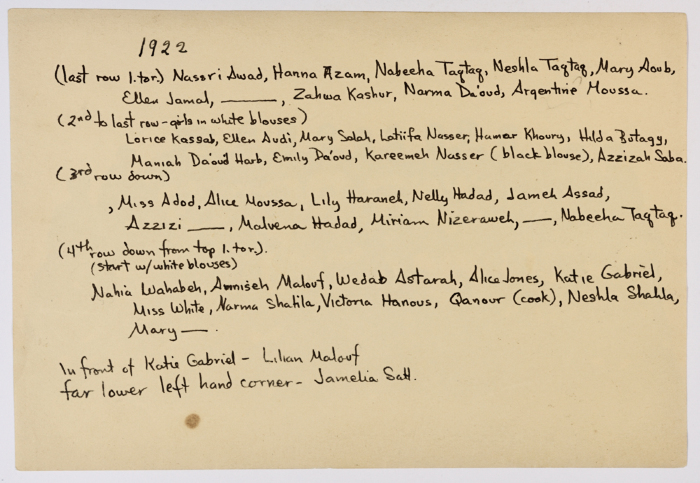 1922
(last row l.tor.) Nassri Awad, Hanna Azam, Nabeeha Taqtaq, Neshla Taqtaq, Mary Aoub,
Ellen Jamal, ———, Zahwa Kashur, Narma Da'oud, Argentine Moussa.
(2nd to last row-girls in white blouses)
Lorice Kassab, Ellen Audi, Mary Salah, Latiifa Nasser, Humar Khoury, Hilda Butagy,
Maniah Da'oud Harb, Emily Da'oud, Kareemeh Nasser (black blouse), Azzizah Saba.
(3rd row down)
, Miss Adod, Alice Moussa, Lily Haraneh, Nelly Hadad, Jameh Assad,
Azzizi ——, Malvena Hadad, Miriam Nizeraweh, ——, Nabeeha Taqtaq.
(4th row down from top l.tor.).
(start w/white blouses)
Nahia Wahabeh, Anniseh Malouf, Wedab Astarah, Alice Jones, Katie Gabriel,
Miss White, Narma Shahla, Victoria Hanous, Qanour (cook), Neshla Shahla,
Mary ——.
In front of Katie Gabriel - Lilian Malouf
far lower left hand corner - Jamelia Salt.